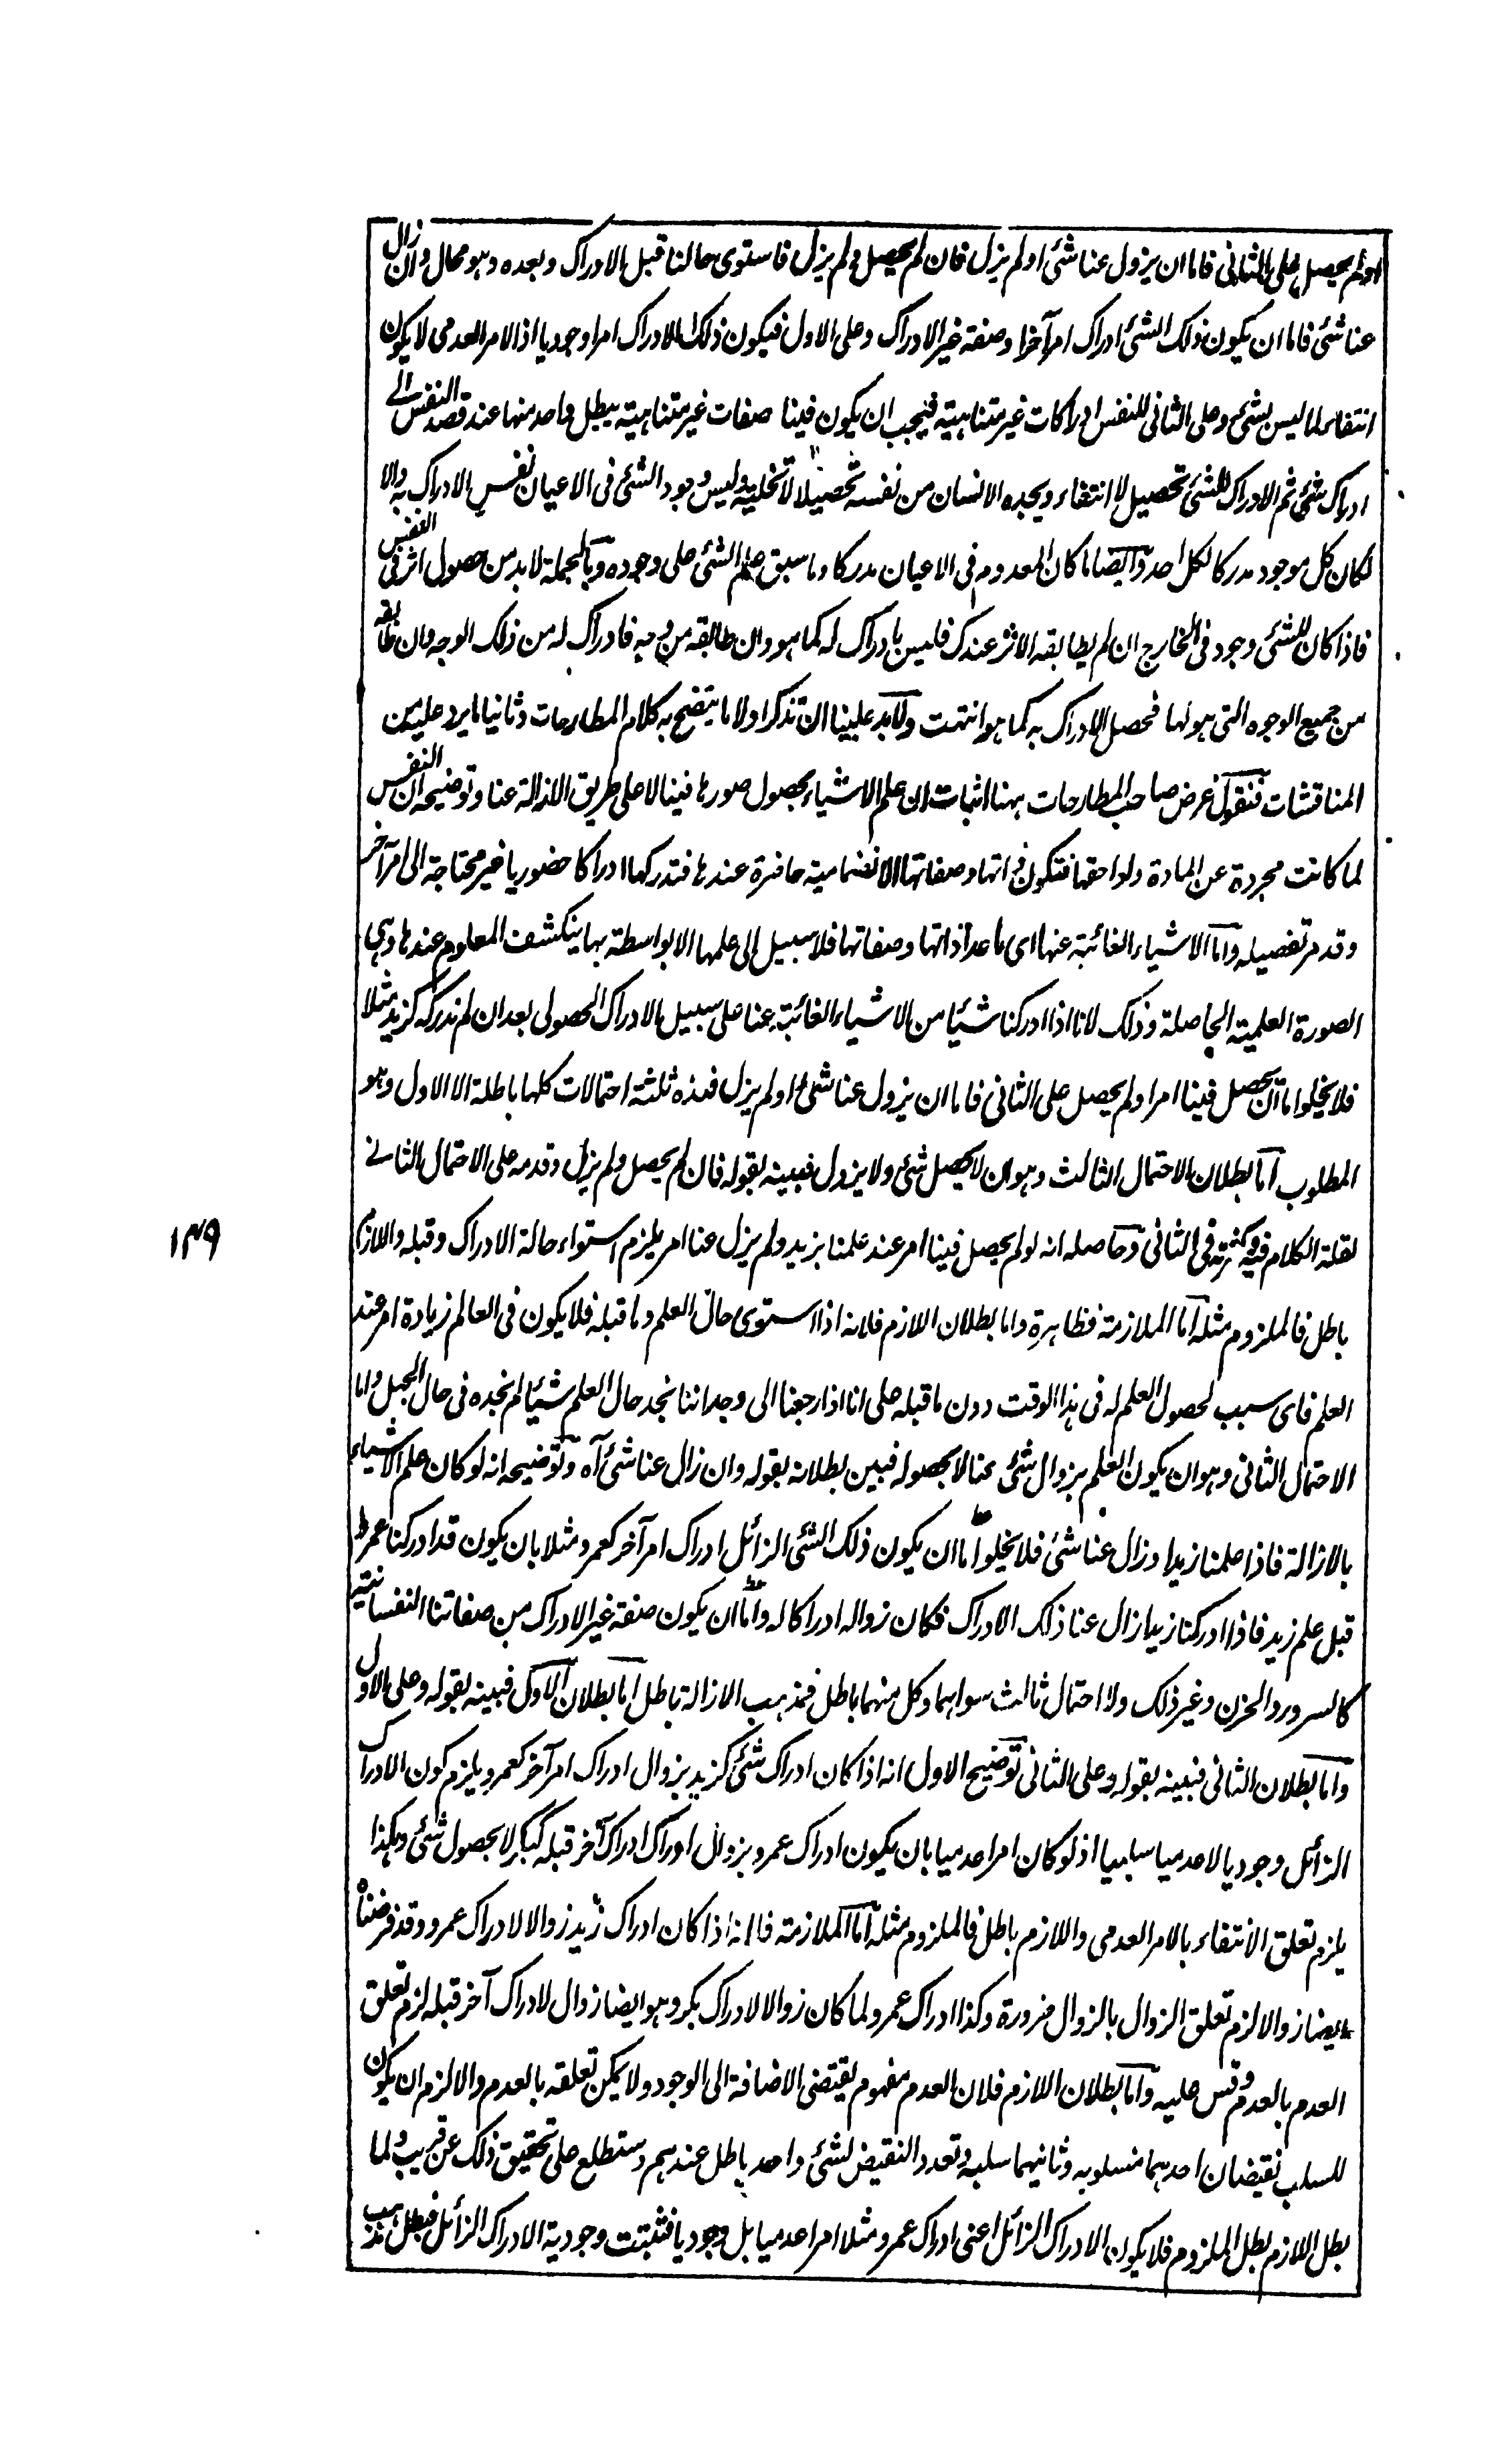 او لم يحصل على الثاني فاما ان يزول عنا شئ او لم يزل فان لم يحصل ولم يزل فاستوى حالنا قبل الادراك وبعده وهو محال وان زال
عنا شئ فاما ان يكون ذلك الشئ ادراك امر آخر او صفة غير الادراك وعلى الاول فيكون ذلك الادراك امرا وجوديا اذ الامر العدمى لا يكون
انتفاء لما ليس بشئ وعلى الثانى للنفس ادراكات غير متناهية فيجب ان يكون فينا صفات غير متناهية يبطل واحد منها عند قصد النفس الى
ادراك شئ ثم الادراك للشئ تحصيل لا انتفاء ويجده الانسان من نفسه تحصيلا لا تخلية وليس وجود الشئ فى الاعيان نفس الادراك به والا
لكان كل موجود مدركا لكل احد وايضا ما كان المعدوم فى الاعيان مدركا وما سبق علم الشئ على وجوده وبالجملة لابد من حصول اثر فى النفس
فاذا كان للشئ وجود فى الخارج ان لم يطابقه الاثر عندك فليس بادراك له كما هو وان طابقه من وجه فادراك له من ذلك الوجه وان طابقه
من جميع الوجوه التى هو لها فحصل الادراك به كما هو انتهت ولابد علينا ان نذكر اولا ما يتضح به كلام المطارحات وثانيا ما يرد عليه من
المناقشات فنقول غرض صاحب المطارحات ههنا اثبات ان علم الاشياء بحصول صورها فينا لا على طريق الازالة عنا وتوضيحه ان النفس
لما كانت مجردة عن المادة ولواحقها فتكون ذاتها وصفاتها الانضمامية حاضرة عندها فتدركها ادراكا حضوريا غير محتاجة الى امر آخر
وقد مر تفصيله واما الاشياء الغائبة عنها اى ما عدا ذاتها وصفاتها فلا سبيل الى علمها الا بواسطة بها ينكشف المعلوم عندها وهى
الصورة العلمية الحاصلة وذلك لانا اذا ادركنا شيئا من الاشياء الغائبة عنا على سبيل الادراك الحصولى بعد ان لم ندركه كزيد مثلا
فلا يخلوا ما ان يحصل فينا امر او لم يحصل على الثانى فاما ان يزول عنا شئ او لم يزل فهذه ثلثة احتمالات كلها باطلة الا الاول وهو
المطلوب اما بطلان الاحتمال الثالث وهو ان لا يحصل شئ ولا يزول فبينه بقوله فان لم يحصل ولم يزل وقدمه على الاحتمال الثانى
لقلة الكلام فيه وكثرته فى الثانى وحاصله انه لو لم يحصل فينا امر عند علمنا بزيد ولم يزل عنا امر يلزم استواء حالة الادراك وقبله واللازم
باطل فالملزوم مثله اما الملازمة فظاهرة واما بطلان اللازم فلانه اذا استوى حال العلم وما قبله فلا يكون فى العالم زيادة امر عند
العلم فاى سبب لحصول العلم له فى هذا الوقت دون ما قبله على انا اذا رجعنا الى وجداننا نجد حال العلم شيئا لم نجده فى حال الجهل واما
الاحتمال الثانى وهو ان يكون العلم بزوال شئ عنا لا بحصوله فبين بطلانه بقوله وان زال عنا شئ آه وتوضيحه انه لو كان علم الاشياء
بالازالة فاذا علمنا زيدا وزال عنا شئ فلا يخلوا ما ان يكون ذلك الشئ الزائل ادراك امر آخر كعمرو مثلا بان يكون قد ادركنا عمروا
قبل علم زيد فاذا ادركنا زيدا زال عنا ذلك الادراك فكان زواله ادراكا له واما ان يكون صفة غير الادراك من صفاتنا النفسانية
كالسرور والحزن وغير ذلك ولا احتمال ثالث سواهما وكل منهما باطل فمذهب الازالة باطل اما بطلان الاول فبينه بقوله وعلى الاول
واما بطلان الثانى فبينه بقوله وعلى الثانى توضيح الاول انه اذا كان ادراك شئ كزيد بزوال ادراك امر آخر كعمرو يلزم كون الادراك
الزائل وجوديا لا عدميا سلبيا اذ لو كان امرا عدميا بان يكون ادراك عمرو بزوال ادراك ادراك آخر قبله كبكر لا بحصول شئ وهكذا
يلزم تعلق الانتفاء بالامر العدمى واللازم باطل فالملزوم مثله اما الملازمة فلانه اذا كان ادراك زيد زوالا لادراك عمرو وقد فرضناه
ايضا زوالا لزم تعلق الزوال بالزوال ضرورة وكذا ادراك عمرو لما كان زوالا لادراك بكر وهو ايضا زوال لادراك آخر قبله لزم تعلق
العدم بالعدم وقس عليه واما بطلان اللازم فلان العدم مفهوم يقتضى الاضافة الى الوجود ولا يمكن تعلقه بالعدم والا لزم ان يكون
للسلب نقيضان احدهما مسلوبه وثانيهما سلبه وتعدد النقيض لشئ واحد باطل عندهم وستطلع على تحقيق ذلك عن قريب ولما
بطل اللازم بطل الملزوم فلا يكون الادراك الزائل اعنى ادراك عمرو مثلا امرا عدميا بل وجوديا فثبتت وجودية الادراك الزائل فبطل مذهب
١٣٩